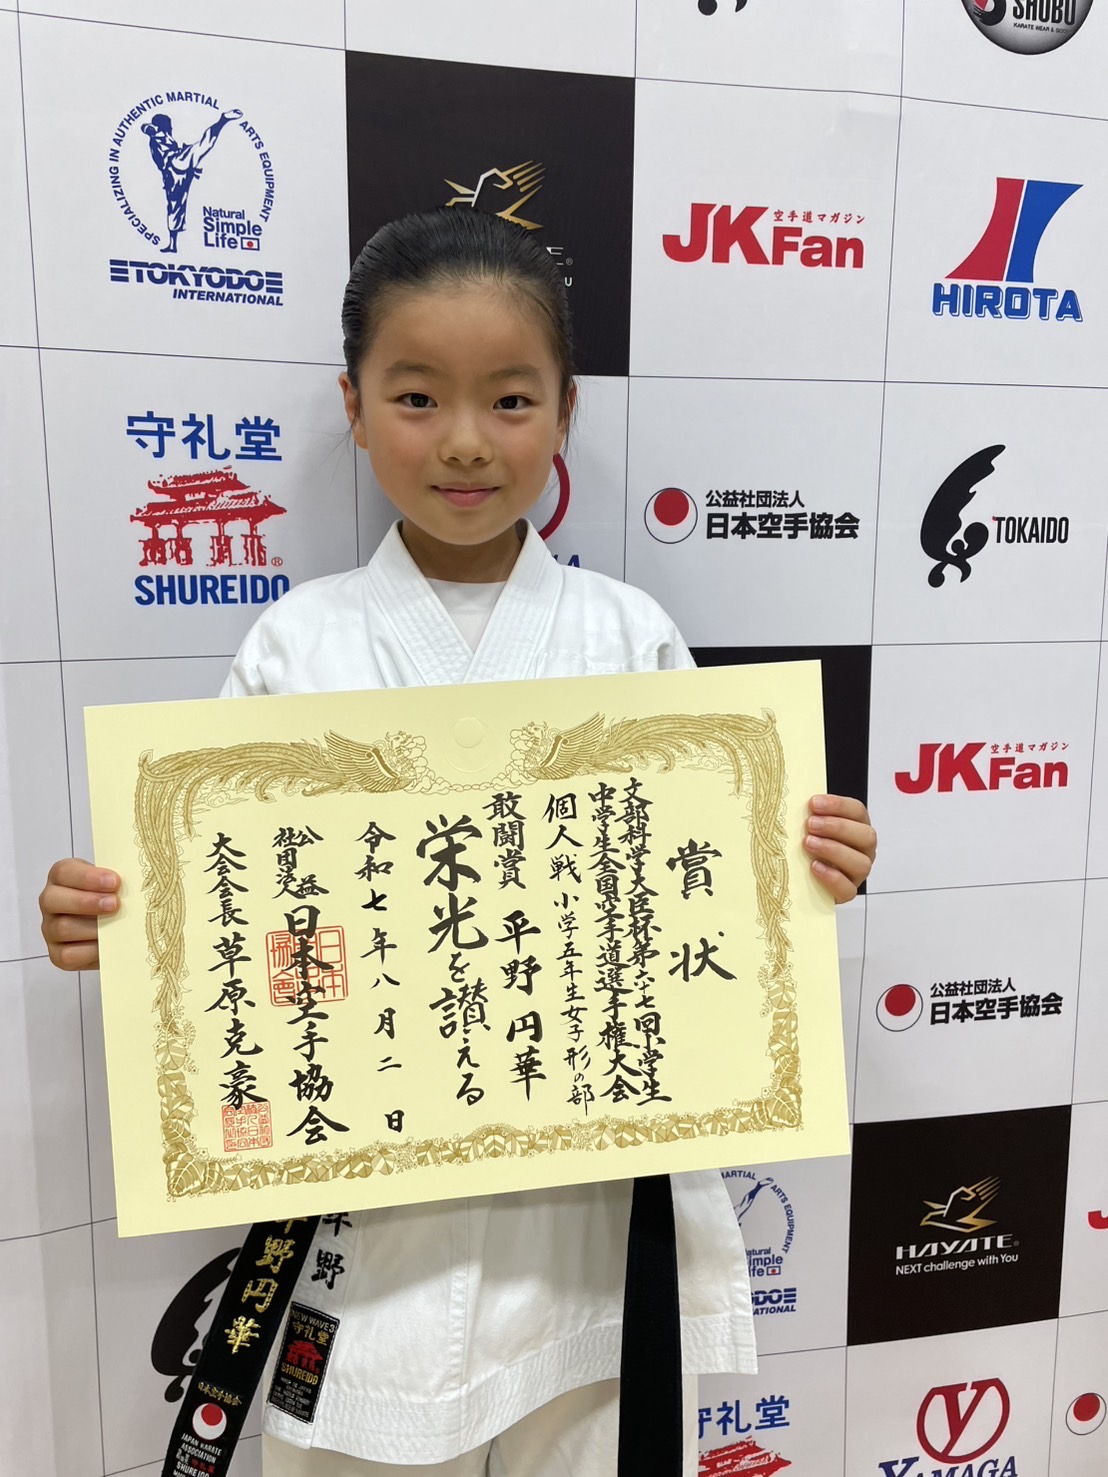 SHOBO
KARATE WEAR & GOODS
SPECIALIZING IN AUTHENTIC MARTIAL ARTS EQUIPMENT
Natural
Simple
Life
TOKYODO
INTERNATIONAL
空手道マガジン
JKFan
HIROTA
守礼堂
SHUREIDO
公益社団法人
日本空手協会
TOKAIDO
空手道マガジン
JKFan
賞状
文部科学大臣杯第六十七回小学生
中学生全国空手道選手権大会
個人戦 小学五年生女子形の部
敢闘賞 平野円華
栄光を讃える
令和七年八月二日
公益
社団法人
日本空手協会
大会会長 草原克豪
公益社団法人
日本空手協会
MARTIAL ARTS EQUIPMENT
Natural
Simple
Life
HAYATE
NEXT challenge with You
平野円華
日本空手協会
JAPAN KARATE
ASSOCIATION
SHUREIDO
平野
NEW WAVE 3
守礼堂
SHUREIDO
守礼堂
Y
YAMAGA